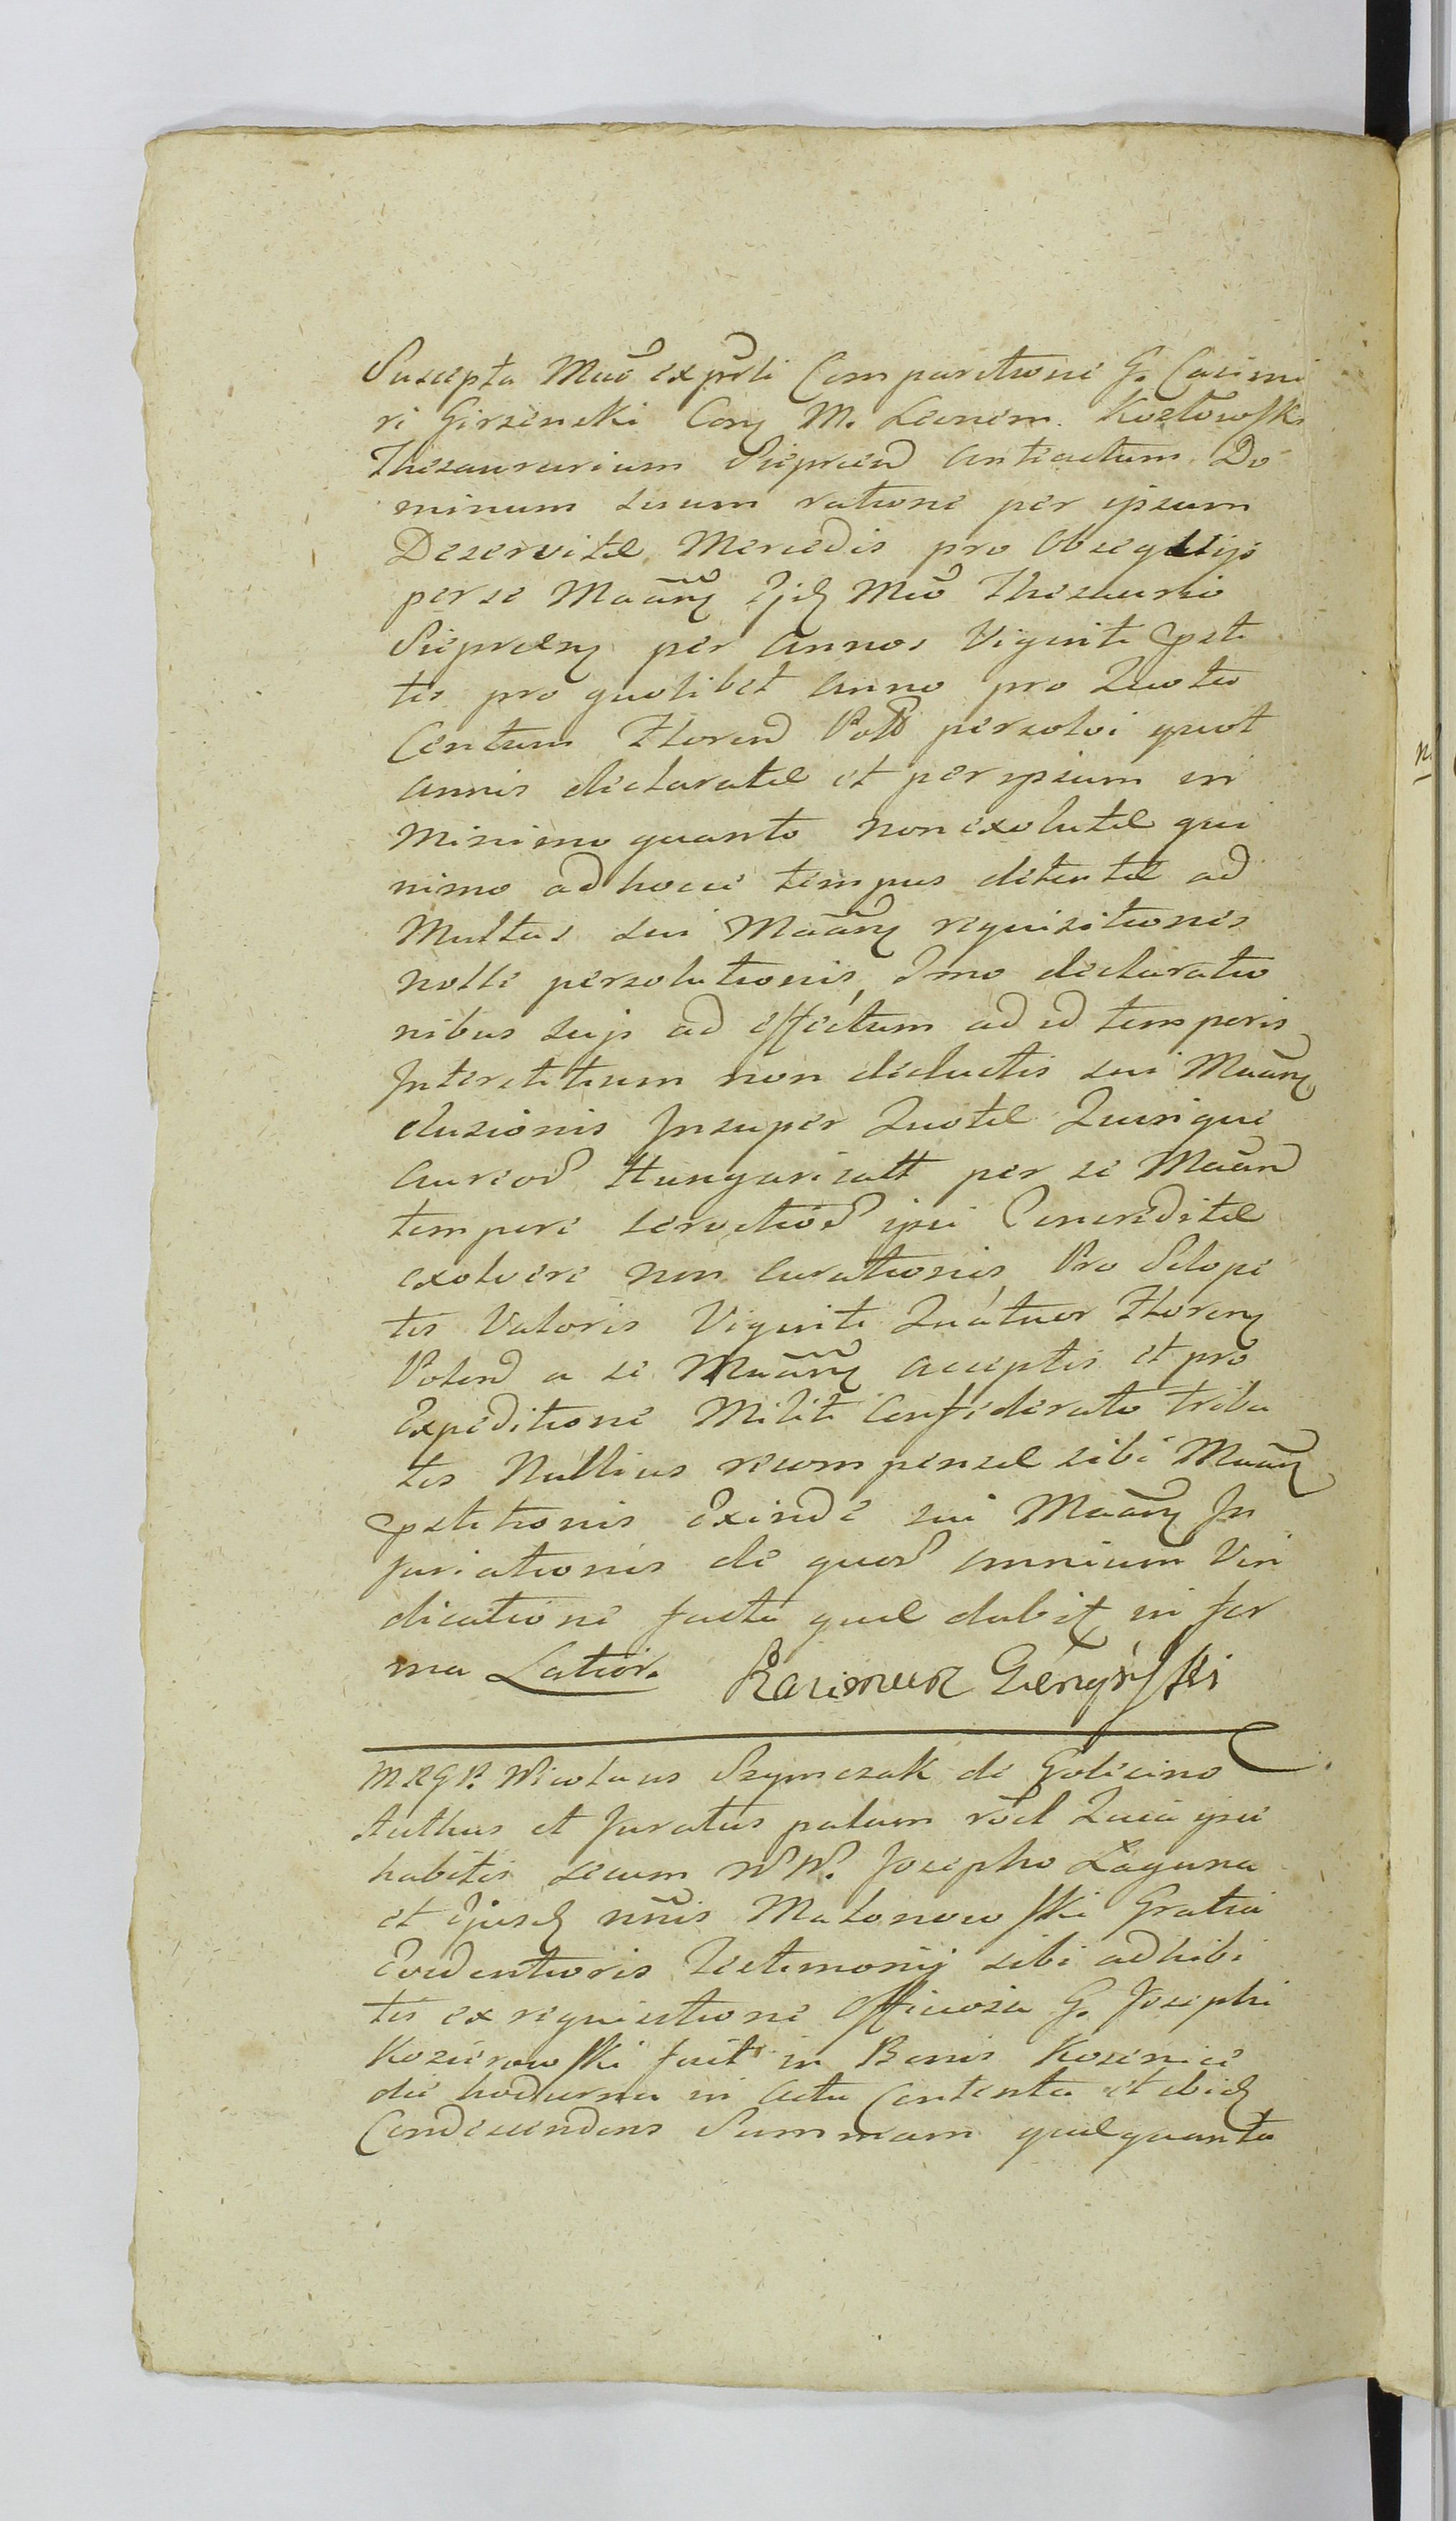 Suscepta Mãe exprti Comparitione G. Casimi
ri Girzenski Conq M. Leonem Kozłowski
Thesaurarium Siepracen antiactum Do
minum suum ratione per ipsum
Deservitae Mercedis pro Obsequijs
per se Maãnq Ejdq Mco Thesaurio
Siepraenq per annos Viginti psti
tis pro quolibet anno pro Quota
Centum Floren Poll persolvi quot
annis declaratae et per ipsum in
minimo quanto non exolutae qui
nimo ad hocce tempus detentae ad
Multas sui Maãnq requisitiones
nolle persolutionis, Imo declaratio
nibus suis ad effectum ad id temporis
Interstitium non deductis sui Maãnq
elusionis Insuper Quotae Quinque
aureor Hungaricall per se Maãn
tempore servitior ipsi Concreditae
exolvere non curationis, Pro Sclope
tis Valoris Viginti Quatuor Florenq
Polon a se Maãnq acceptis et pro
Expeditione Militi Confederato tribu
tis Nullius recompensae sibi Maãnq
pstitionis Exinde sui Maãnq In
juriationis de quor omnium Vin
dicatione facta quae dabit in for
ma Latior. Kazimierz Gierzyński
MRGP. Nicolaus Szymczak de Golicino
Authus et Juratus palam rcd Quia ipse
habitis secum NN. Josepho Łaguna
et Ejusdq nnis Małonowski Gratia
Evidentioris Testimonij sibi adhibi
tis ex requisitione Officiosa G. Josephi
Kozierowski fuit in Bonis Kosenice
die hodierna in actu Contenta et ibidq
Condescendens Summam quaequanta